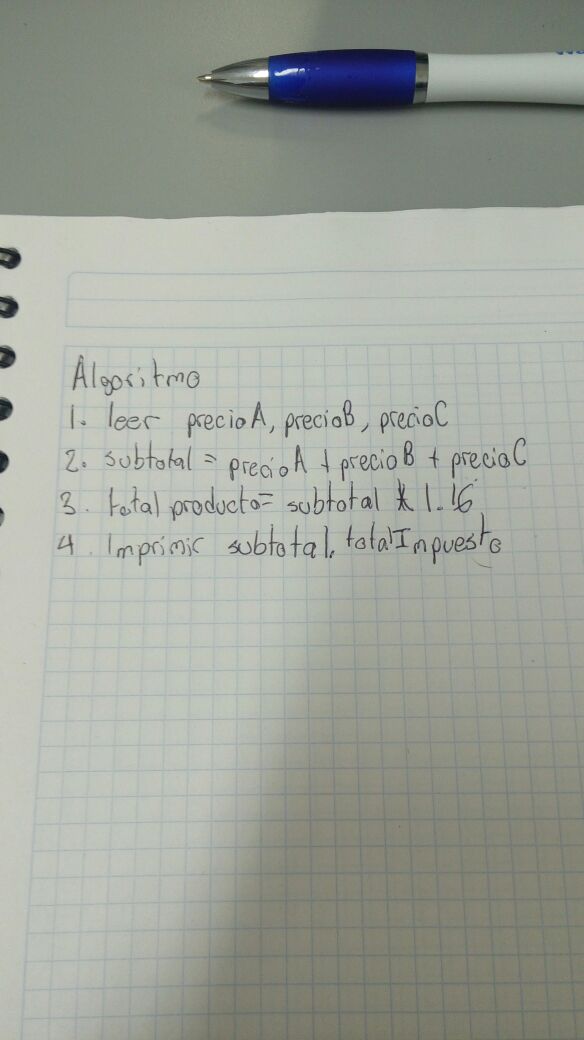 Algoritmo
1. leer precioA, precioB, precioC
2. subtotal = precioA + precioB + precioC
3. total producto= subtotal * 1.16
4. Imprimir subtotal, totalImpuesto